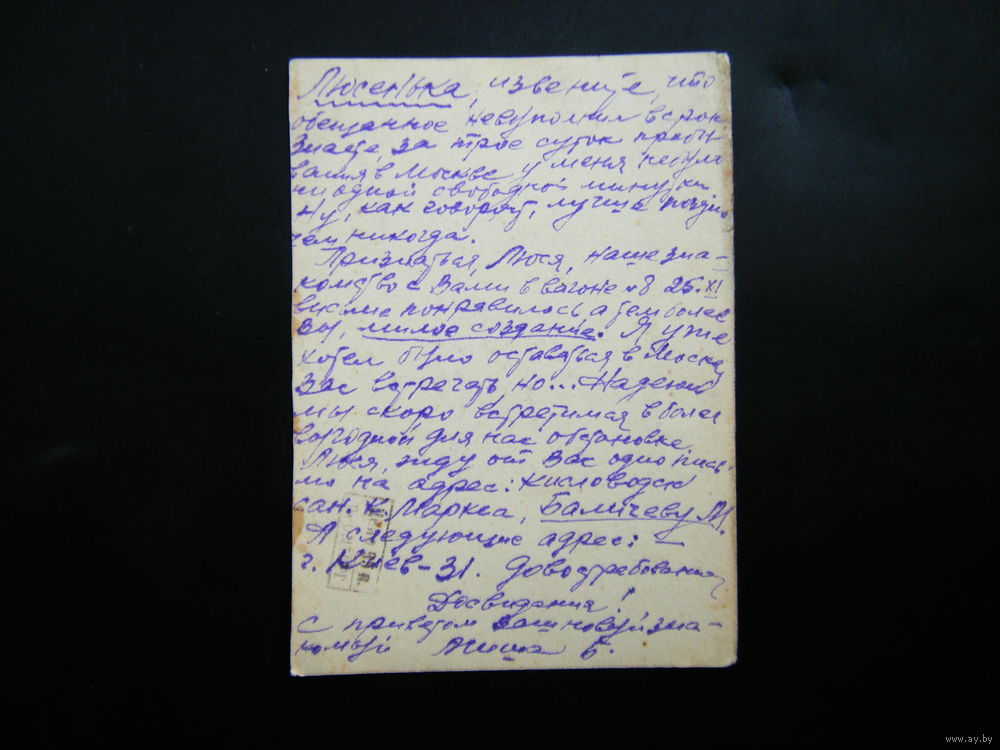 Люсенька, извените, что
обещанное невыполнил в срок
Знаете, за трое суток пребы
вания в Москве у меня небыло
ниодной свободной минутки
Ну, как говорят, лучше поздно
чем никогда.
Признаться, Люся, наше зна-
комство с Вами в вагоне №8 25.XI
весьме понравилось а тем более
Вы, милое создание. Я уже
хотел было оставаться в Москве
Вас встречать, но... Надеюсь
мы скоро встретимся в более
выгодной для нас обстановке
Люся, жду от Вас одно пись-
мо на адрес: Кисловодск
сан. К Маркса, Баличеву М.
А следующие адрес:
г. Киев-31. Довостребования
Досвидания!
С приветом ваш новый зна-
комый Миша Б.
www.ay.by